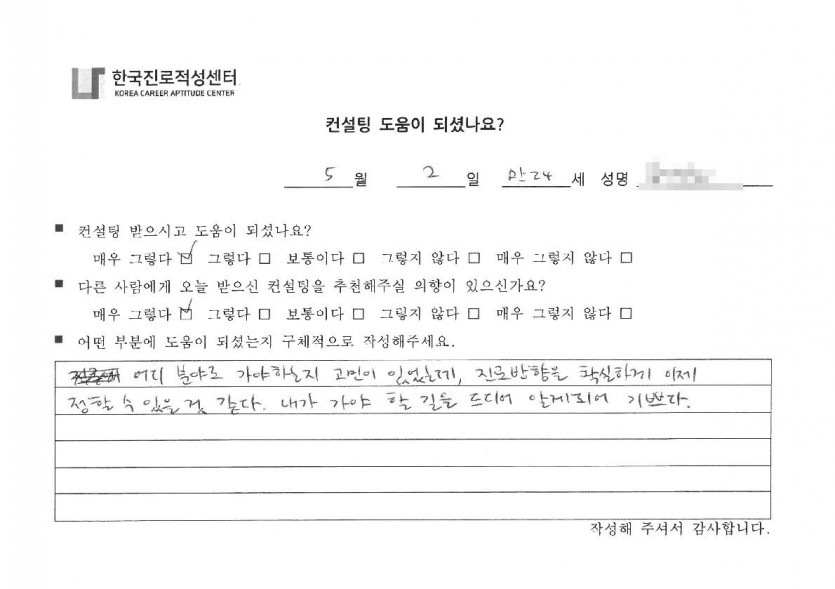 한국진로적성센터
KOREA CAREER APTITUDE CENTER
컨설팅 도움이 되셨나요?
5 월 2 일 만24 세 성명
■ 컨설팅 받으시고 도움이 되셨나요?
매우 그렇다 ☑ 그렇다 □ 보통이다 □ 그렇지 않다 □ 매우 그렇지 않다 □
■ 다른 사람에게 오늘 받으신 컨설팅을 추천해주실 의향이 있으신가요?
매우 그렇다 ☑ 그렇다 □ 보통이다 □ 그렇지 않다 □ 매우 그렇지 않다 □
■ 어떤 부분에 도움이 되셨는지 구체적으로 작성해주세요.
어디 분야로 가야하는지 고민이 있었는데, 진로방향을 확실하게 이제
정할 수 있을 것 같다. 내가 가야 할 길을 드디어 알게되어 기쁘다.
작성해 주셔서 감사합니다.